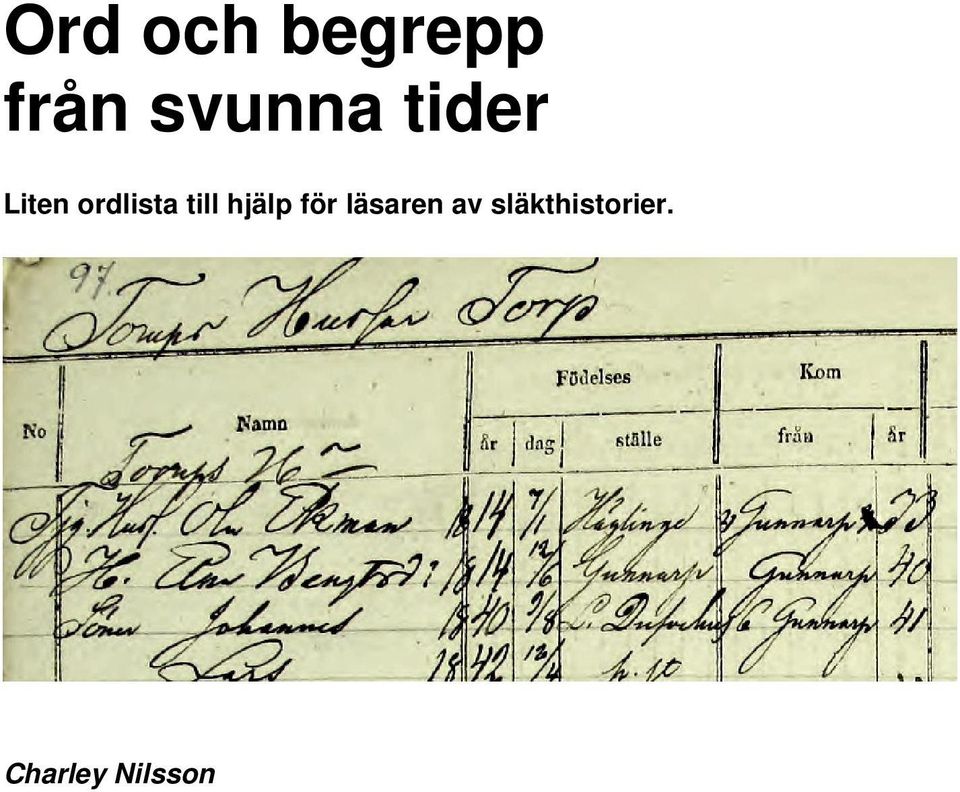 Ord och begrepp
från svunna tider
Liten ordlista till hjälp för läsaren av släkthistorier.
97.
Torups Husar Torp
Födelses Kom
No Namn år dag ställe från år
Torups
Ola Ekman 1814 7/1 Häglinge Gunnarp 33
H. Bengtsd: 1814 12/6 Gunnarp Gunnarp 40
Söner Johannes 1840 9/8 Gunnarp 41
Lars 1842 12/4
Charley Nilsson